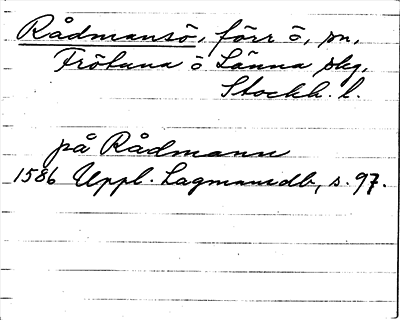 Rådmansö, förr ö, sn,
Frötuna o Länna skg,
Stockh. l.
på Rådmann
1586 Uppl. Lagmansdb, s. 97.